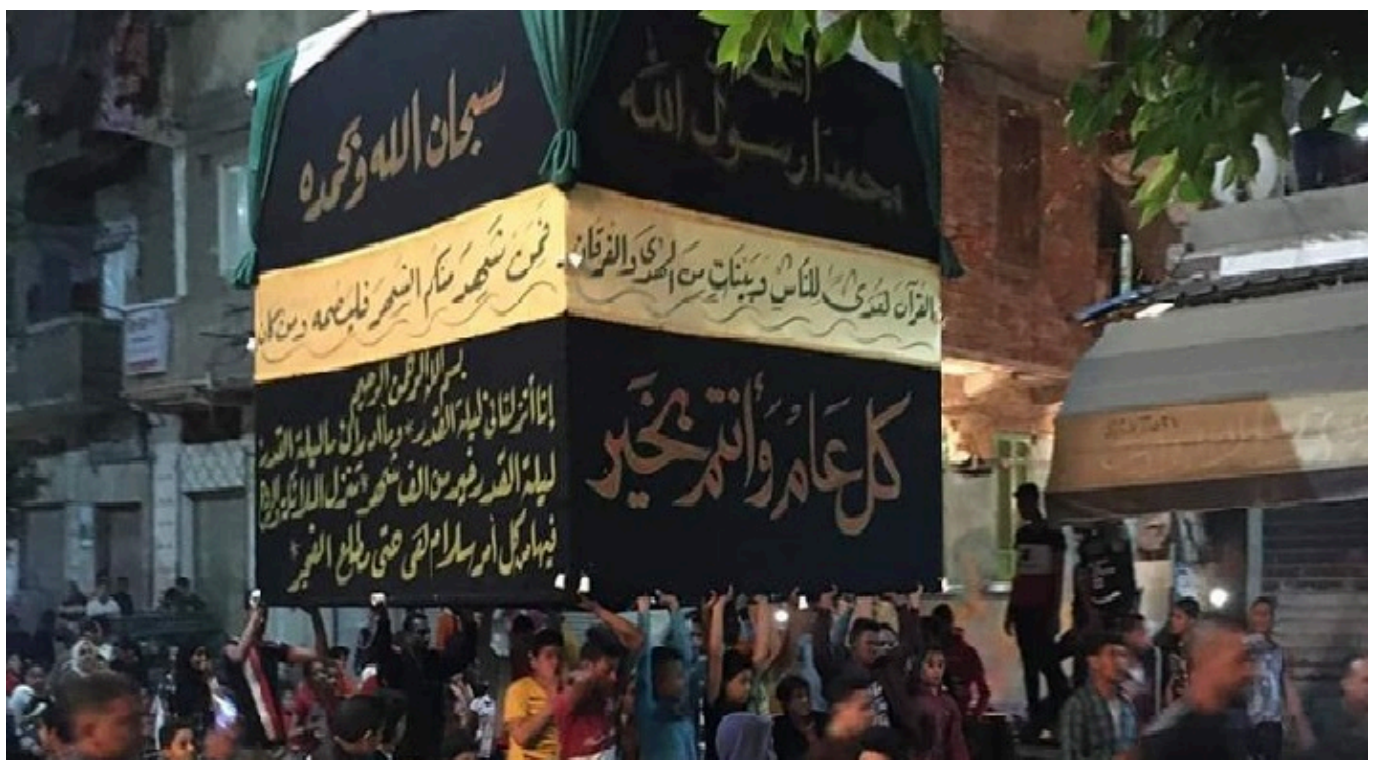 سبحان الله وبحمده
محمدا رسول الله
فمن شهد منكم الشهر فليصمه ومن كان
القرآن هدى للناس وبينات من الهدى والفرقان
بسم الله الرحمن الرحيم
إنا أنزلناه في ليلة القدر * وما أدراك ما ليلة القدر
ليلة القدر خير من الف شهر * تنزل الملائكة والروح
فيها من كل أمر سلام هي حتى مطلع الفجر
كل عام وأنتم بخير